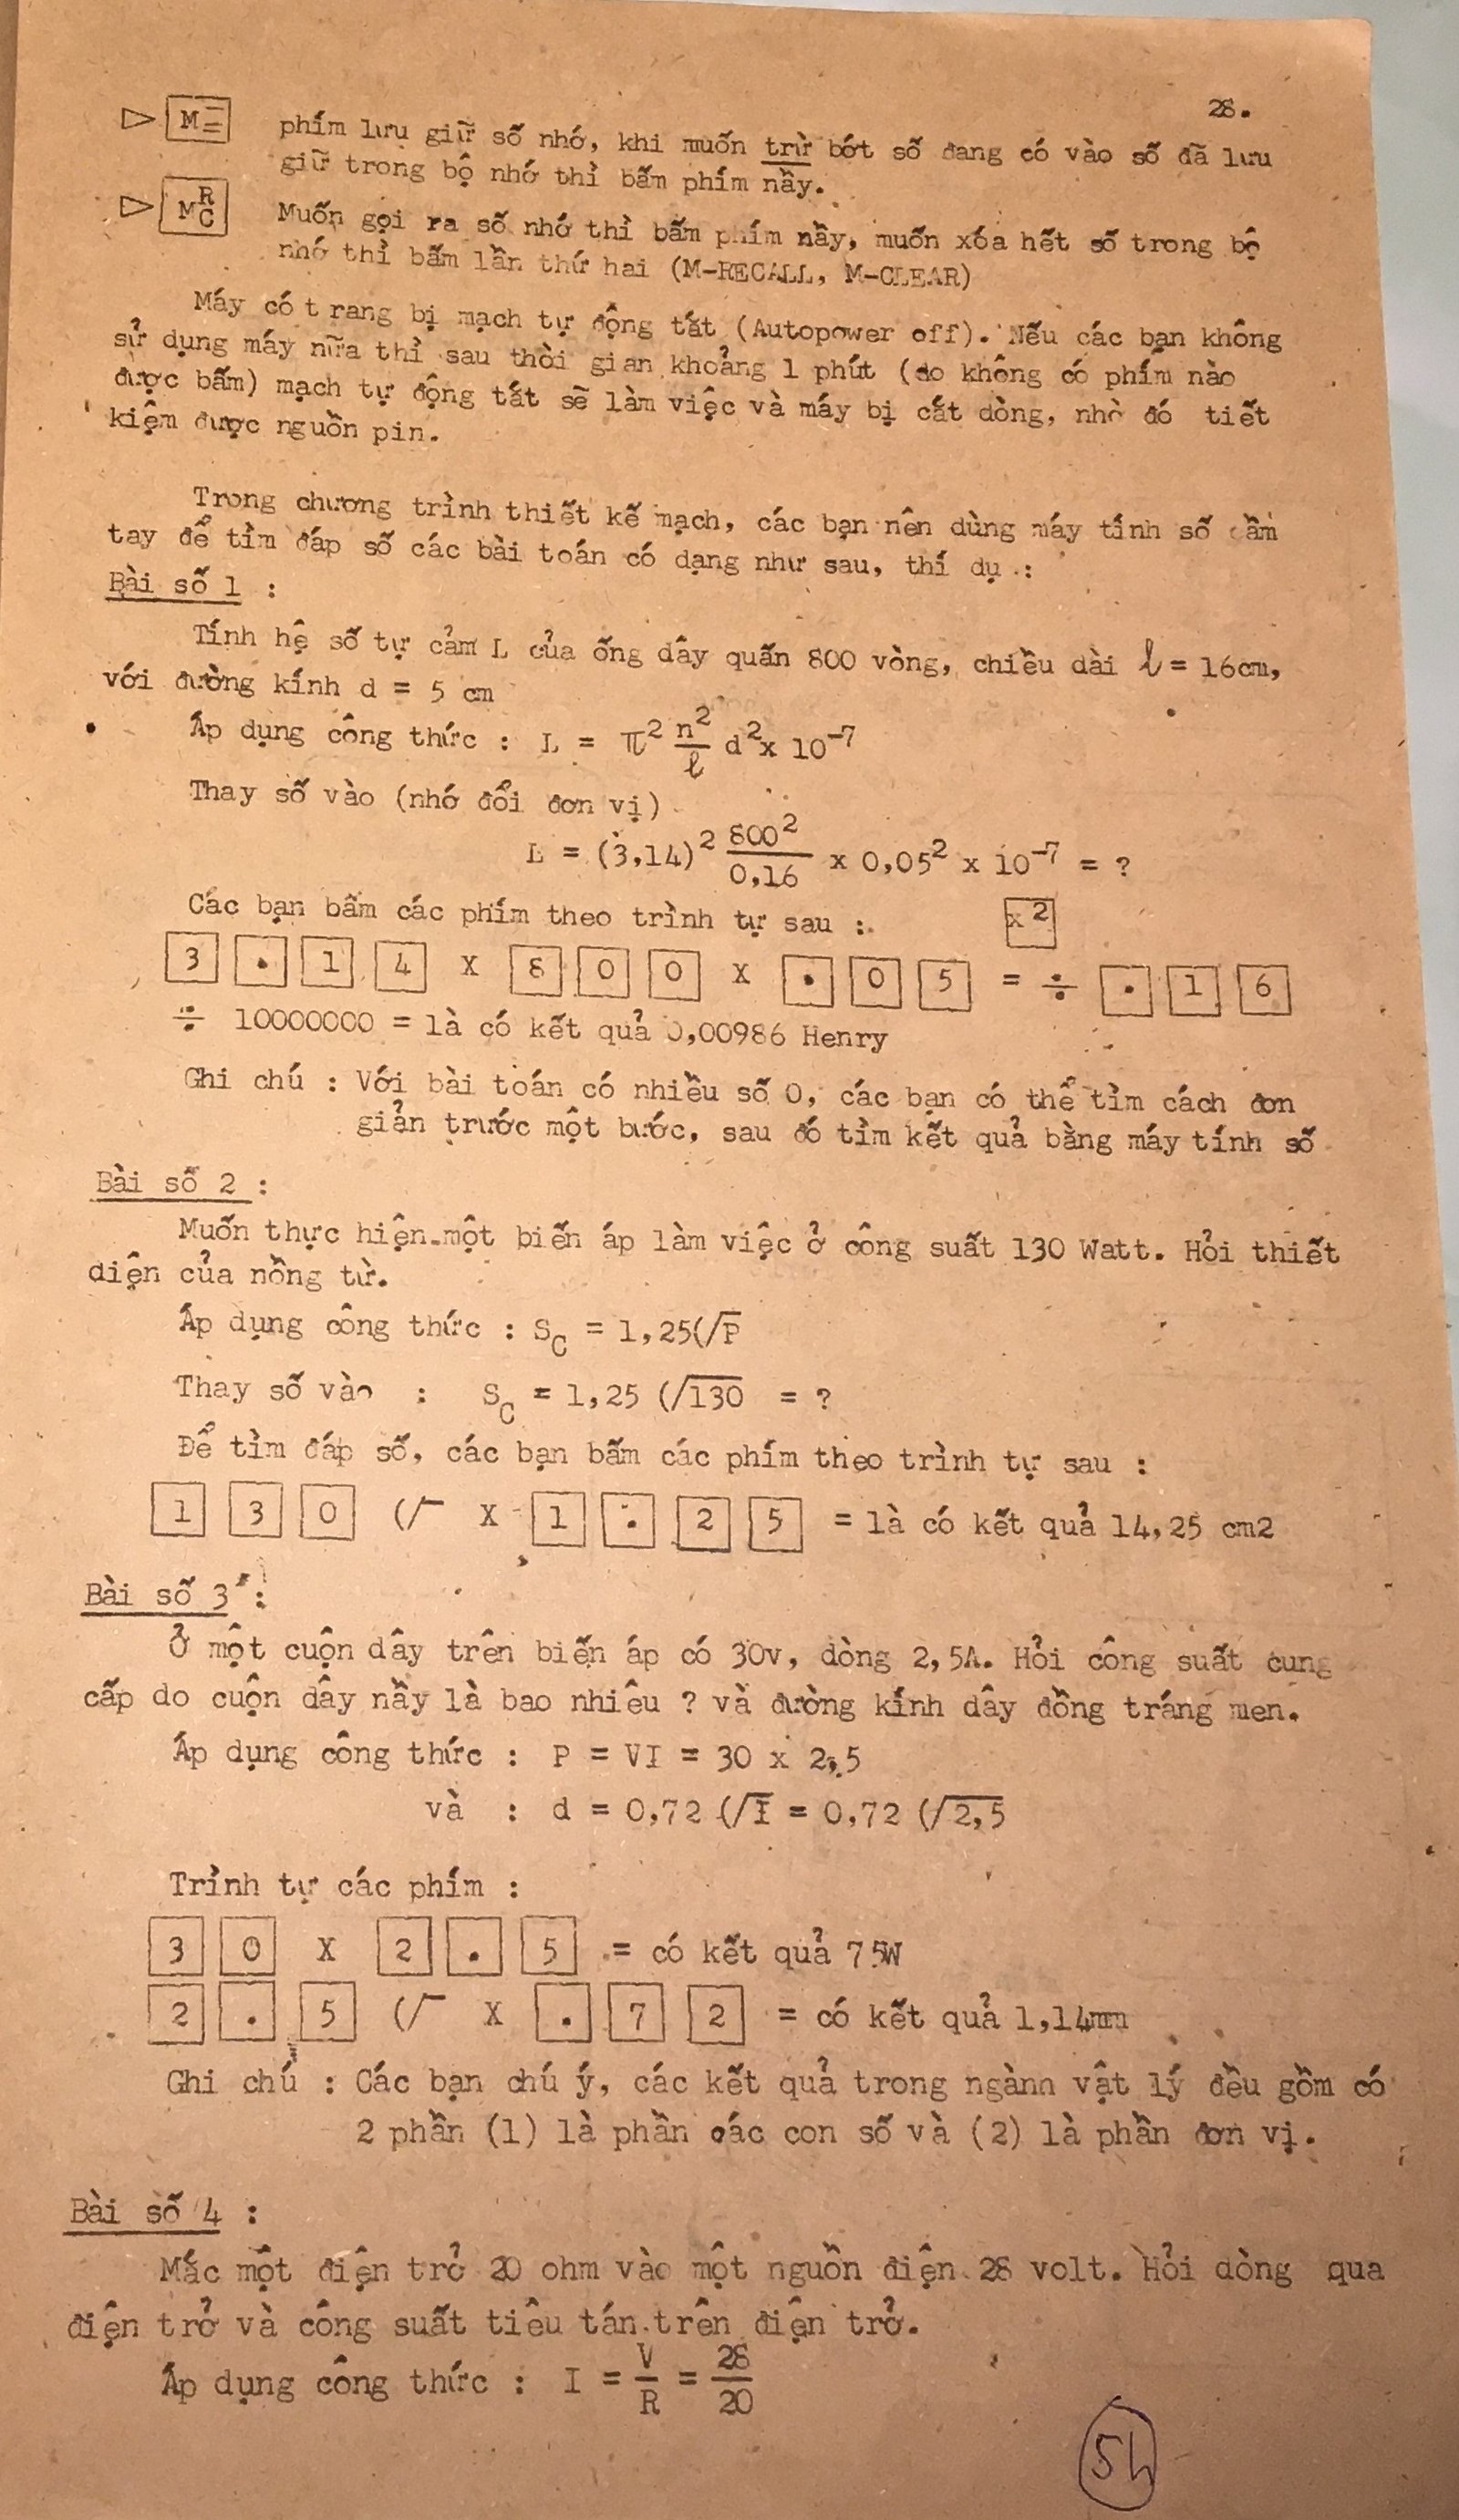 28.
▷ M= phím lưu giữ số nhớ, khi muốn trừ bớt số đang có vào số đã lưu
giữ trong bộ nhớ thì bấm phím nầy.
▷ MRC Muốn gọi ra số nhớ thì bấm phím nầy, muốn xóa hết số trong bộ
nhớ thì bấm lần thứ hai (M-RECALL, M-CLEAR)
Máy có trang bị mạch tự động tắt (Autopower off). Nếu các bạn không
sử dụng máy nữa thì sau thời gian khoảng 1 phút (do không có phím nào
được bấm) mạch tự động tắt sẽ làm việc và máy bị cắt dòng, nhờ đó tiết
kiệm được nguồn pin.
Trong chương trình thiết kế mạch, các bạn nên dùng máy tính số cầm
tay để tìm đáp số các bài toán có dạng như sau, thí dụ :
Bài số 1 :
Tính hệ số tự cảm L của ống dây quấn 800 vòng, chiều dài ℓ = 16cm,
với đường kính d = 5 cm
Áp dụng công thức : L = π² n²/ℓ d² x 10⁻⁷
Thay số vào (nhớ đổi đơn vị)
L = (3,14)² 800²/0,16 x 0,05² x 10⁻⁷ = ?
Các bạn bấm các phím theo trình tự sau : x²
3 . 1 4 X 8 0 0 X . 0 5 = ÷ . 1 6
÷ 10000000 = là có kết quả 0,00986 Henry
Ghi chú : Với bài toán có nhiều số 0, các bạn có thể tìm cách đơn
giản trước một bước, sau đó tìm kết quả bằng máy tính số
Bài số 2 :
Muốn thực hiện một biến áp làm việc ở công suất 130 Watt. Hỏi thiết
diện của nòng từ.
Áp dụng công thức : SC = 1,25(√P
Thay số vào : SC = 1,25 (√130 = ?
Để tìm đáp số, các bạn bấm các phím theo trình tự sau :
1 3 0 (√ X 1 . 2 5 = là có kết quả 14,25 cm2
Bài số 3 :
Ở một cuộn dây trên biến áp có 30v, dòng 2,5A. Hỏi công suất cung
cấp do cuộn dây nầy là bao nhiêu ? và đường kính dây đồng tráng men.
Áp dụng công thức : P = VI = 30 x 2,5
và : d = 0,72 (√I = 0,72 (√2,5
Trình tự các phím :
3 0 X 2 . 5 = có kết quả 75W
2 . 5 (√ X . 7 2 = có kết quả 1,14mm
Ghi chú : Các bạn chú ý, các kết quả trong ngành vật lý đều gồm có
2 phần (1) là phần các con số và (2) là phần đơn vị.
Bài số 4 :
Mắc một điện trở 20 ohm vào một nguồn điện 28 volt. Hỏi dòng qua
điện trở và công suất tiêu tán trên điện trở.
Áp dụng công thức : I = V/R = 28/20